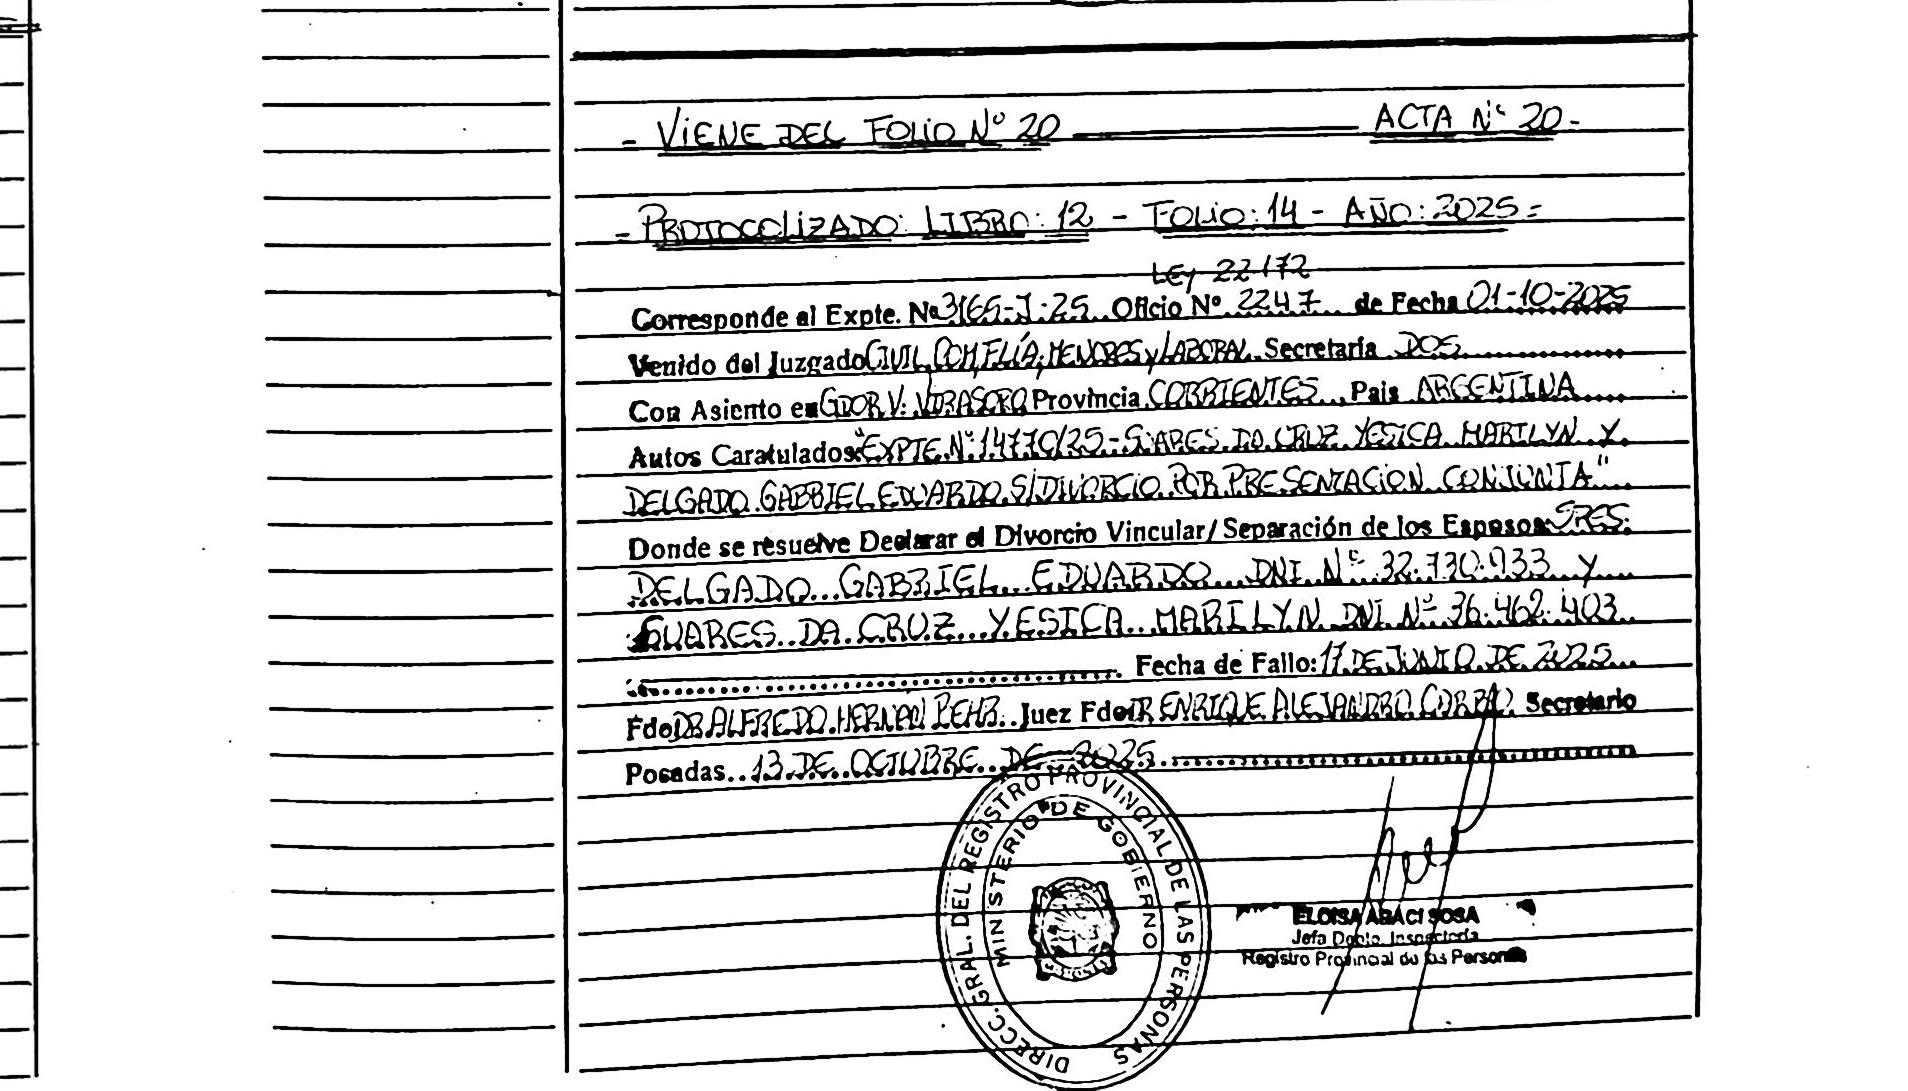 - VIENE DEL FOLIO Nº 20 ——— ACTA Nº 20 -
- PROTOCOLIZADO: LIBRO: 12 - FOLIO: 14 - AÑO: 2025 =
LEY 22172
Corresponde al Expte. Nº 3165-J-25 Oficio Nº 2247 de Fecha 01-10-2025
Venido del Juzgado CIVIL, COM, FLÍA, MENORES y LABORAL Secretaría DOS
Con Asiento en GDOR V. VIRASORO Provincia CORRIENTES País ARGENTINA
Autos Caratulados: "EXPTE Nº 14770/25 - SUARES DA CRUZ YESICA MARILYN Y
DELGADO GABRIEL EDUARDO S/DIVORCIO POR PRESENTACION CONJUNTA"
Donde se resuelve Declarar el Divorcio Vincular/Separación de los Esposos: SRES.
DELGADO GABRIEL EDUARDO DNI Nº 32.730.933 Y
SUARES DA CRUZ YESICA MARILYN DNI Nº 36.462.403
Fecha de Fallo: 17 DE JUNIO DE 2025
Fdo DR ALFREDO HERNÁN Juez Fdo DR ENRIQUE ALEJANDRO Secretario
Posadas 13 DE OCTUBRE DE 2025
DIRECC. GRAL. DEL REGISTRO PROVINCIAL DE LAS PERSONAS
MINISTERIO DE GOBIERNO
ELOISA ARACI SOSA
Jefa Dpto. Inspectoría
Registro Provincial de las Personas